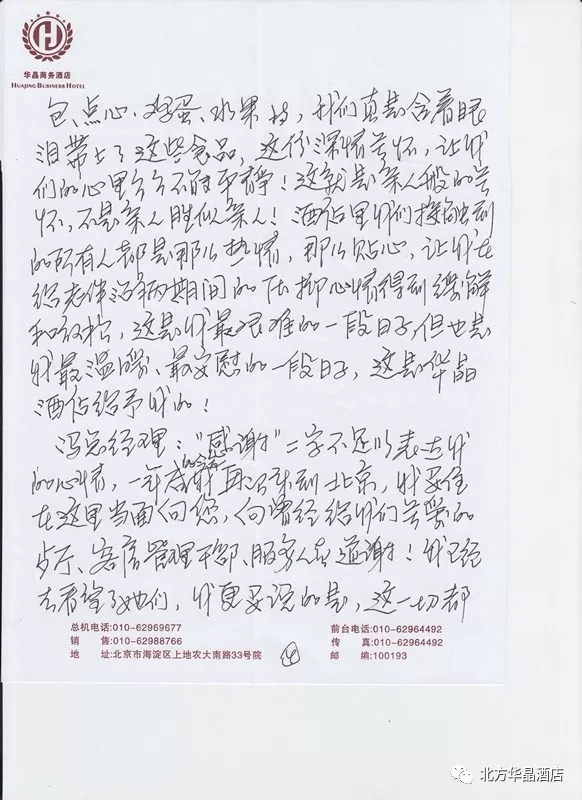 华晶商务酒店
HUAJING BUSINESS HOTEL
包、点心、鸡蛋、水果等,我们真是含着眼
泪带上了这些食品,这份深情关怀,让我
们的心里久久不能平静!这就是亲人般的关
怀,不是亲人胜似亲人!酒店里我们接触到
的所有人都是那么热情,那么贴心,让我在
给老伴治病期间的压抑心情得到缓解
和放松,这是我最艰难的一段日子,但也是
我最温暖、最安慰的一段日子,这是华晶
酒店给予我的!
冯总经理:“感谢”二字不足以表达我
的心情,一年后再次来到北京,我要住
在这里当面向您,向曾经给我们关爱的
餐厅、客房管理干部、服务人员道谢!我已经
去看望了她们,我更要说的是,这一切都
总机电话:010-62969677 前台电话:010-62964492
销 售:010-62988766 传 真:010-62964492
地 址:北京市海淀区上地农大南路33号院 邮 编:100193
④
北方华晶酒店